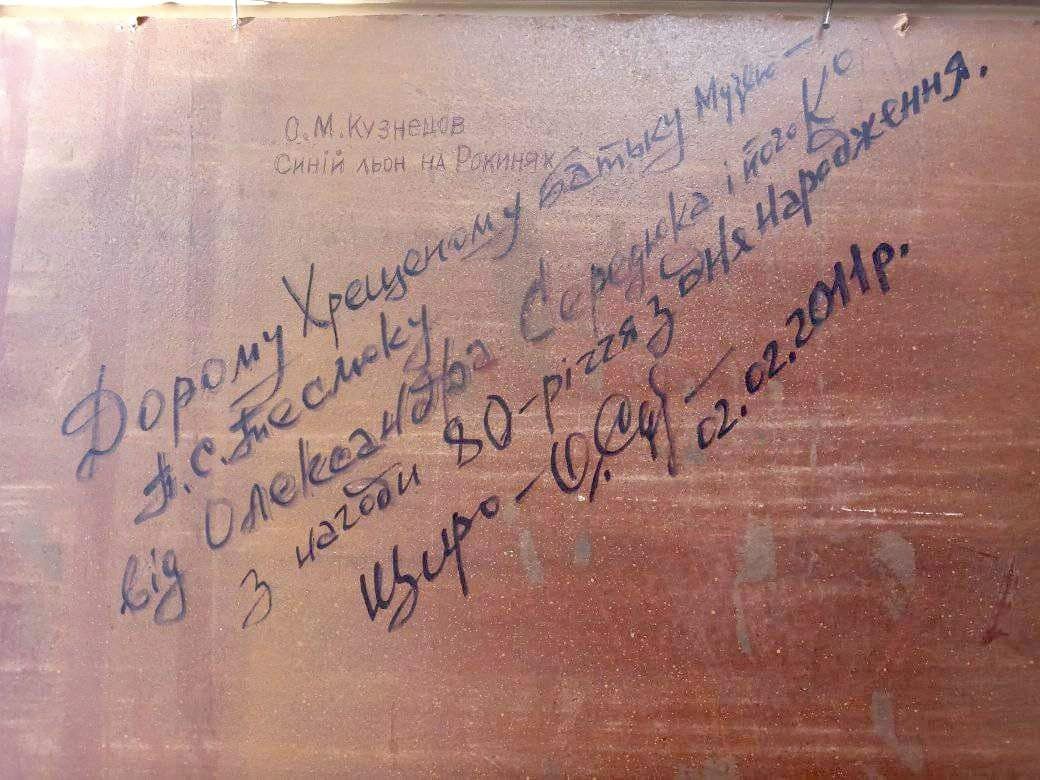 О.М.Кузнецов
Синій льон на Рокинях
Дорому Хрещеному батьку Музею –
від Олександра Середюка і його Ко
з нагоди 80-річчя з дня народження.
Щиро –
02.02.2011р.